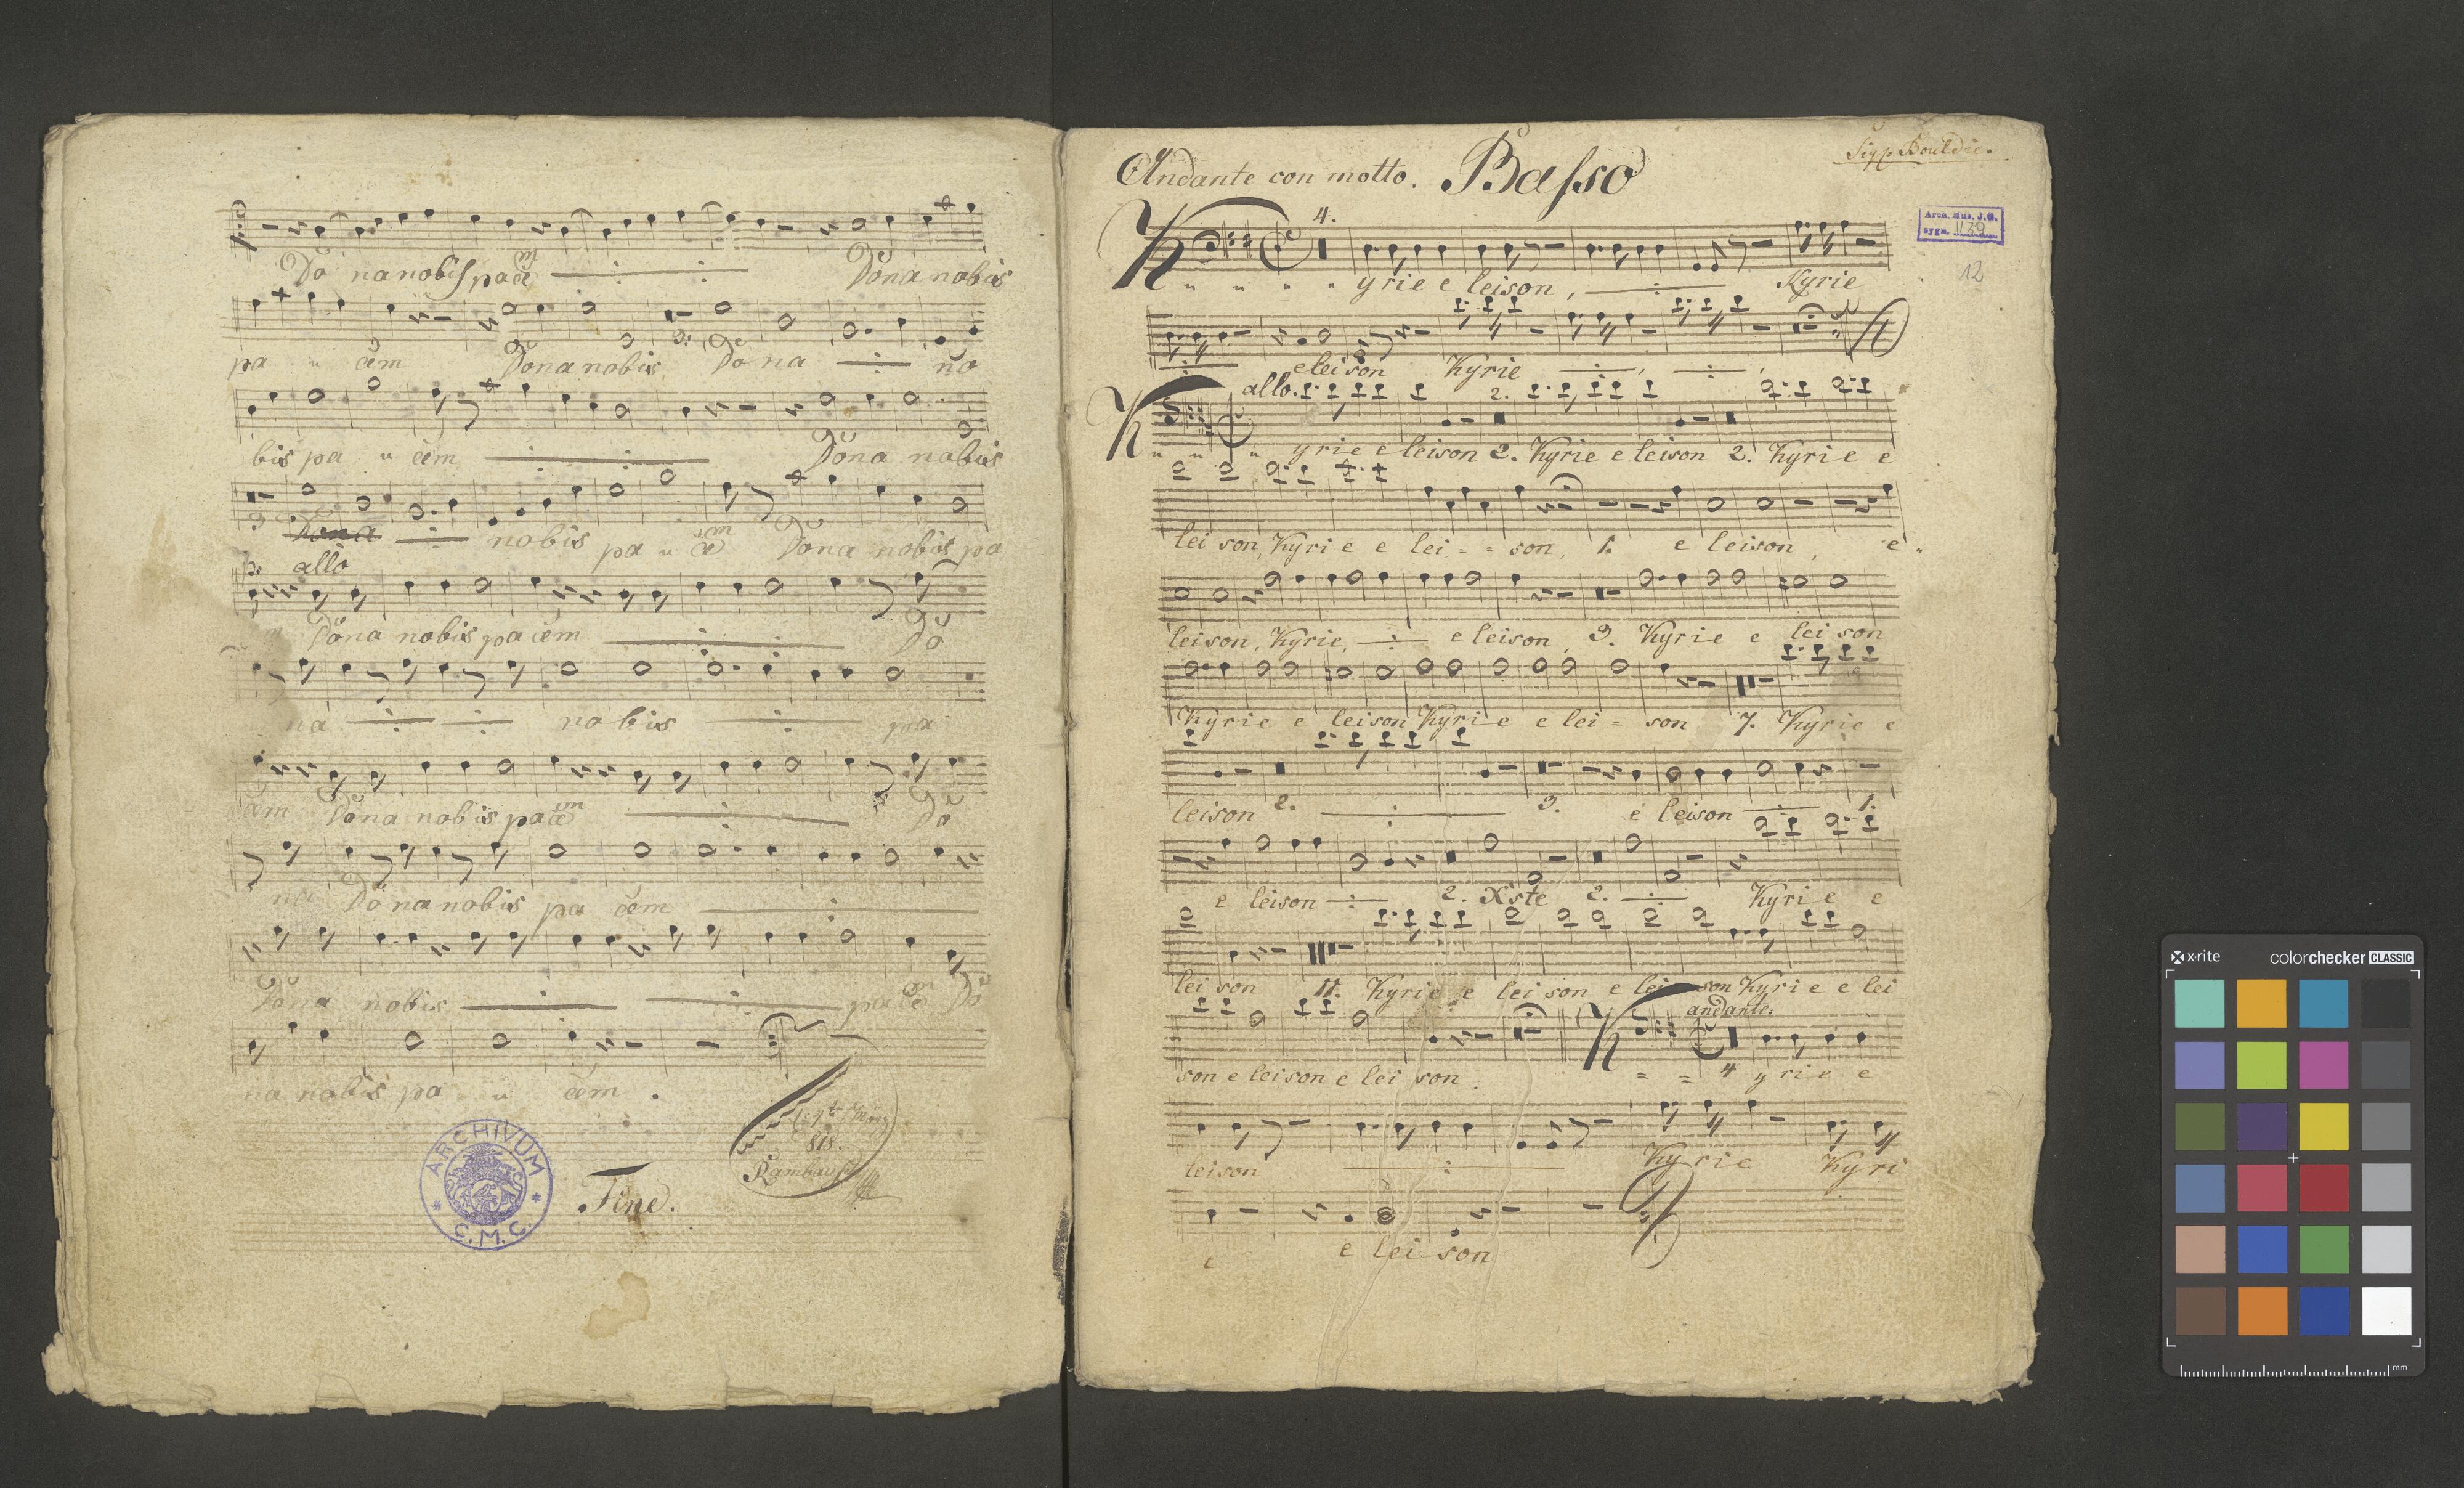 Dona nobis pacem Dona nobis
pa cem Dona nobis Dona no
bis pa cem Dona nobis
Dona nobis pa cem Dona nobis pa
allo
Dona nobis pacem Do
na nobis pa
cem Dona nobis pacem Do
na Dona nobis pa cem
Dona nobis pacem Do
na nobis pa cem.
ARCHIVUM
C.M.C.
Fine.
818.
Andante con motto. Basso
4.
Arch. Mus. J.G.
sygn. 1139
12
Kyrie eleison, Kyrie
eleison Kyrie
allo. 2.
Kyrie eleison 2. Kyrie eleison 2. Kyrie e
leison, Kyrie e lei = = son, 1. e leison, e
leison, Kyrie, eleison, 3. Kyrie e leison
Kyrie e leison Kyrie e lei = son 7. Kyrie e
leison 2. 3. e leison 1.
e leison 2. Xste 2. Kyrie e
leison 11. Kyrie e leison e lei son Kyrie e lei
andante.
son e leison e lei son. K = = 4 yrie e
leison Kyrie Kyri
e e lei son
x·rite colorchecker CLASSIC
mm